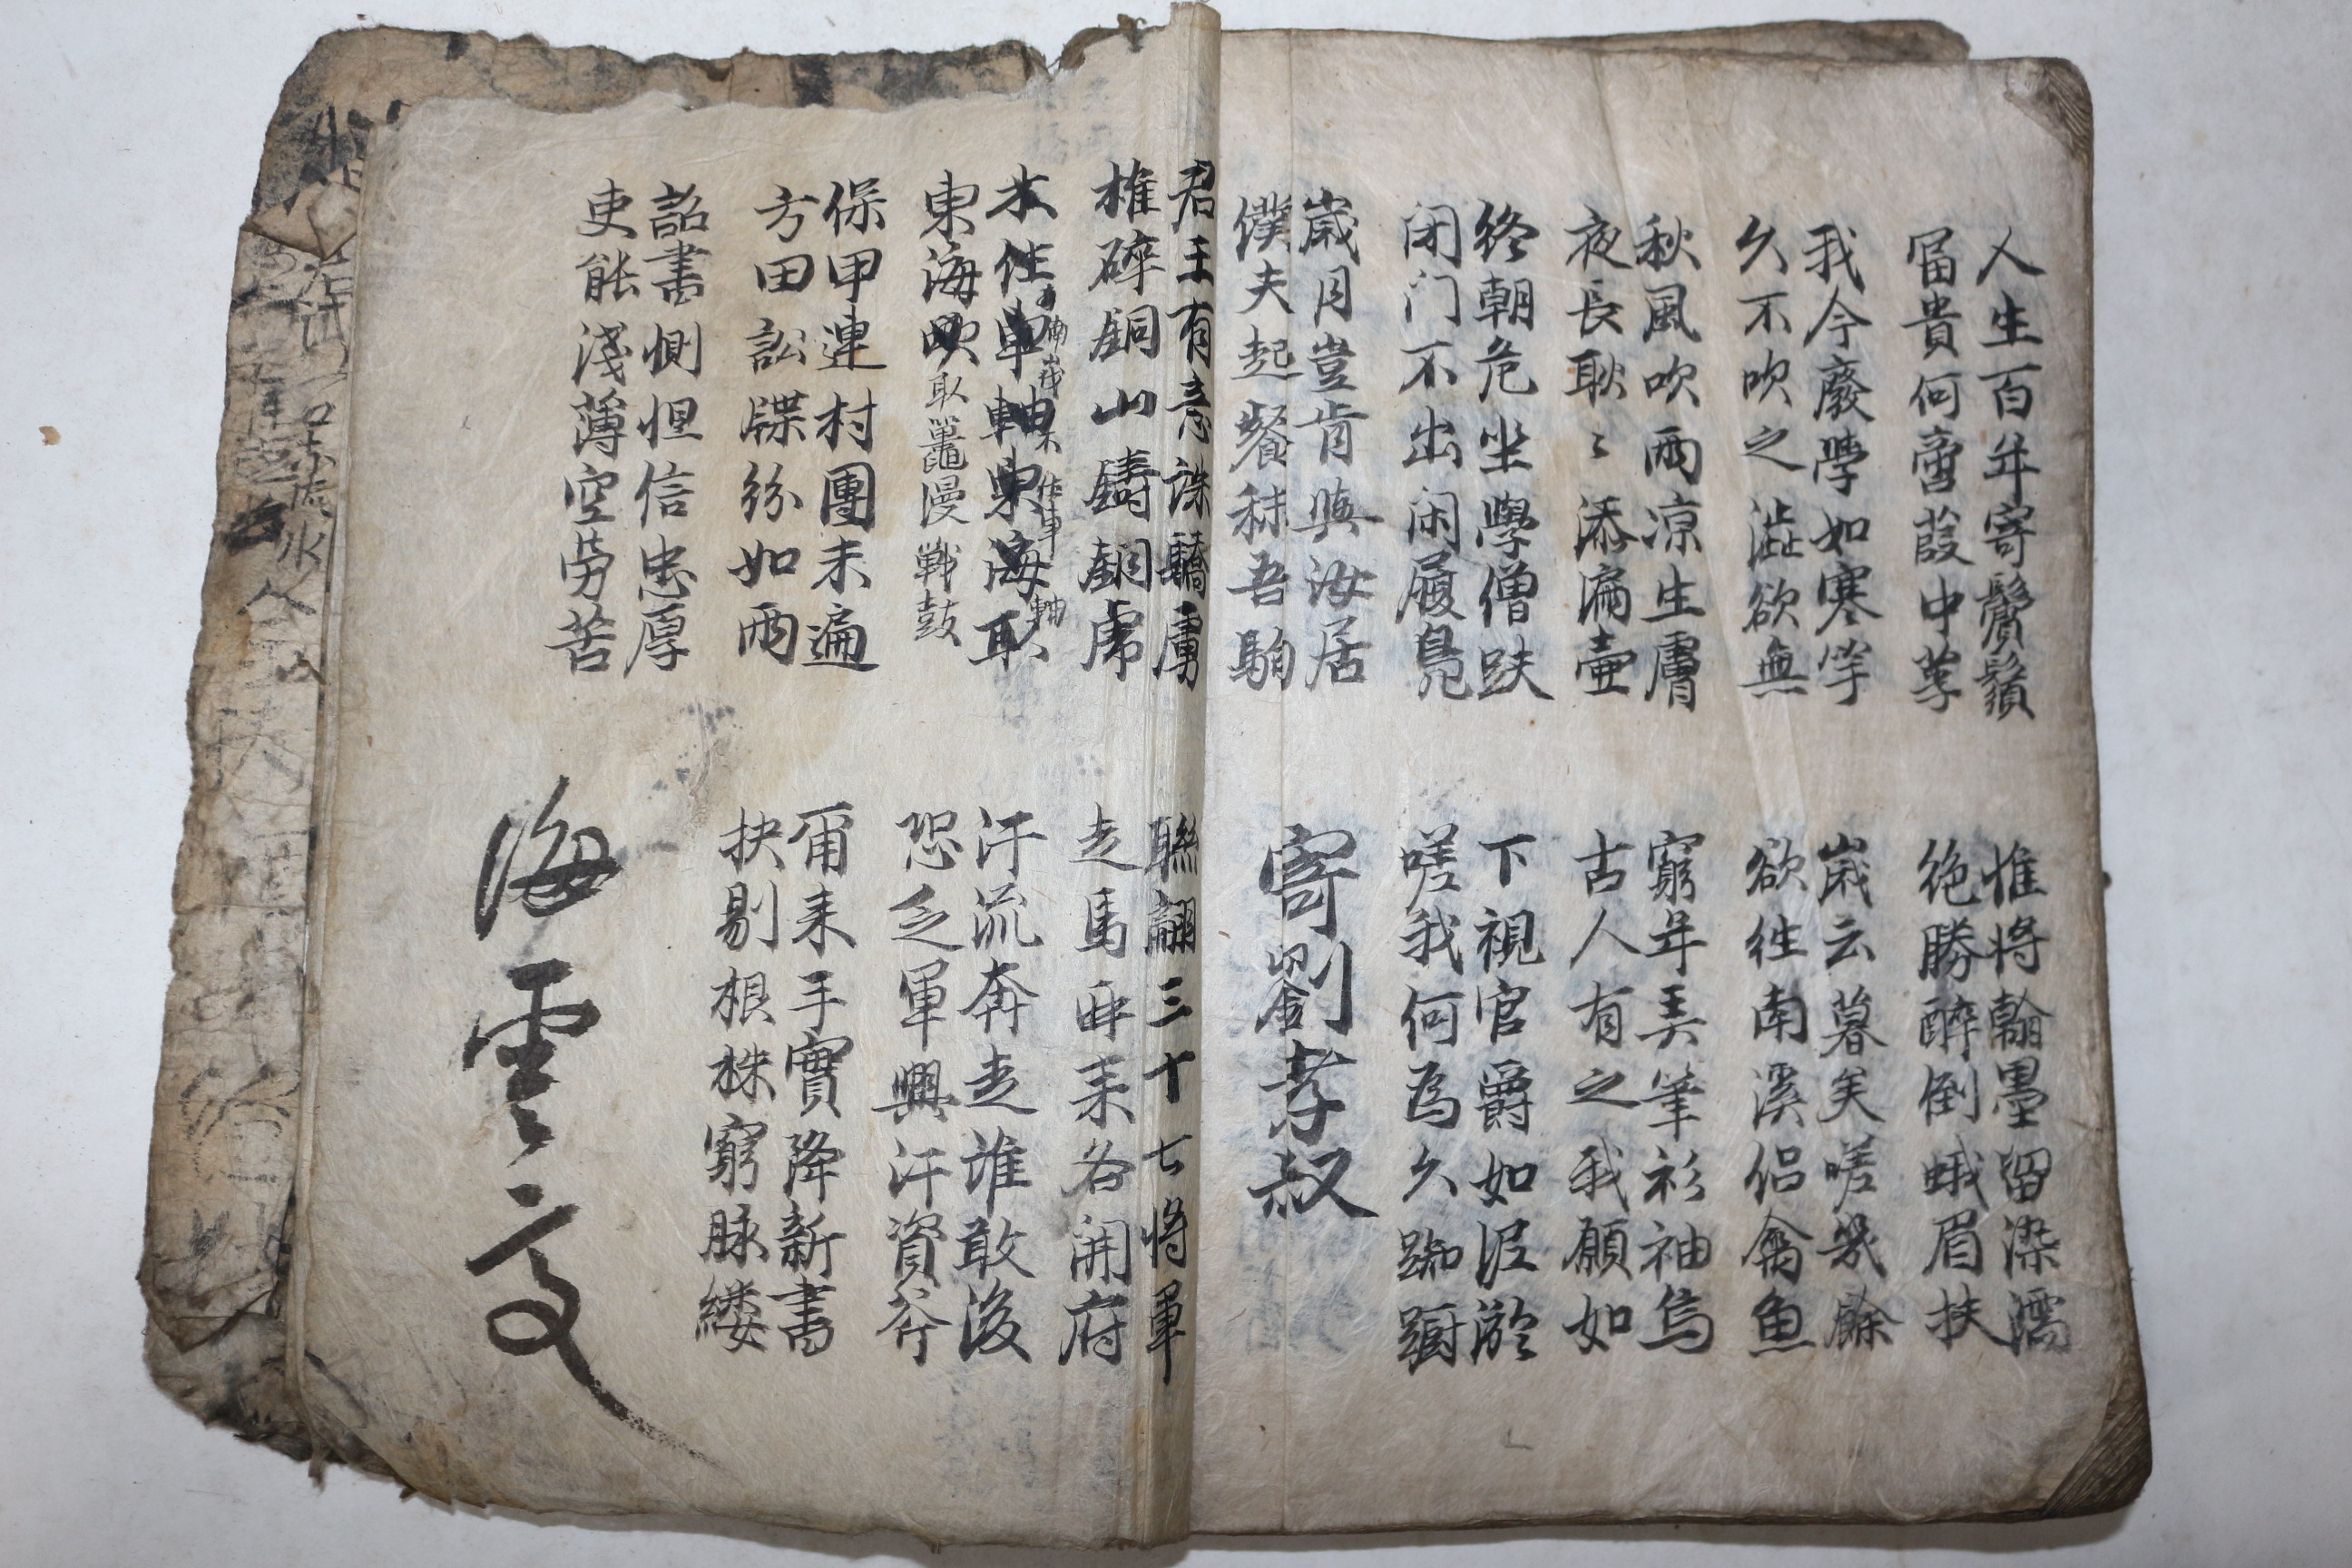 人生百年寄鬢鬚
富貴何啻葭中莩
惟將翰墨留染濡
絶勝醉倒蛾眉扶
我今廢學如寒竽
久不吹之澁欲無
歲云暮矣嗟幾餘
欲往南溪侶禽魚
秋風吹雨凉生膚
夜長耿〻添漏壷
窮年弄筆衫袖烏
古人有之我願如
終朝危坐學僧趺
闭门不出闲履鳧
下視官爵如泥淤
嗟我何為久踟躕
歲月豈肯與汝居
僕夫起餐秣吾駒
寄劉孝叔
君王有意誅驕虜
椎碎銅山鑄銅虎
聯翩三十七將軍
走馬西来各開府
木 車軸東海取
東海 取鼉漫戰鼓
汗流奔走誰敢後
恐乏軍興汗資斧
保甲連村團未遍
方田訟牒紛如雨
爾来手實降新書
抉剔根株窮脉縷
詔書惻怛信忠厚
吏能淺薄空勞苦
海雲